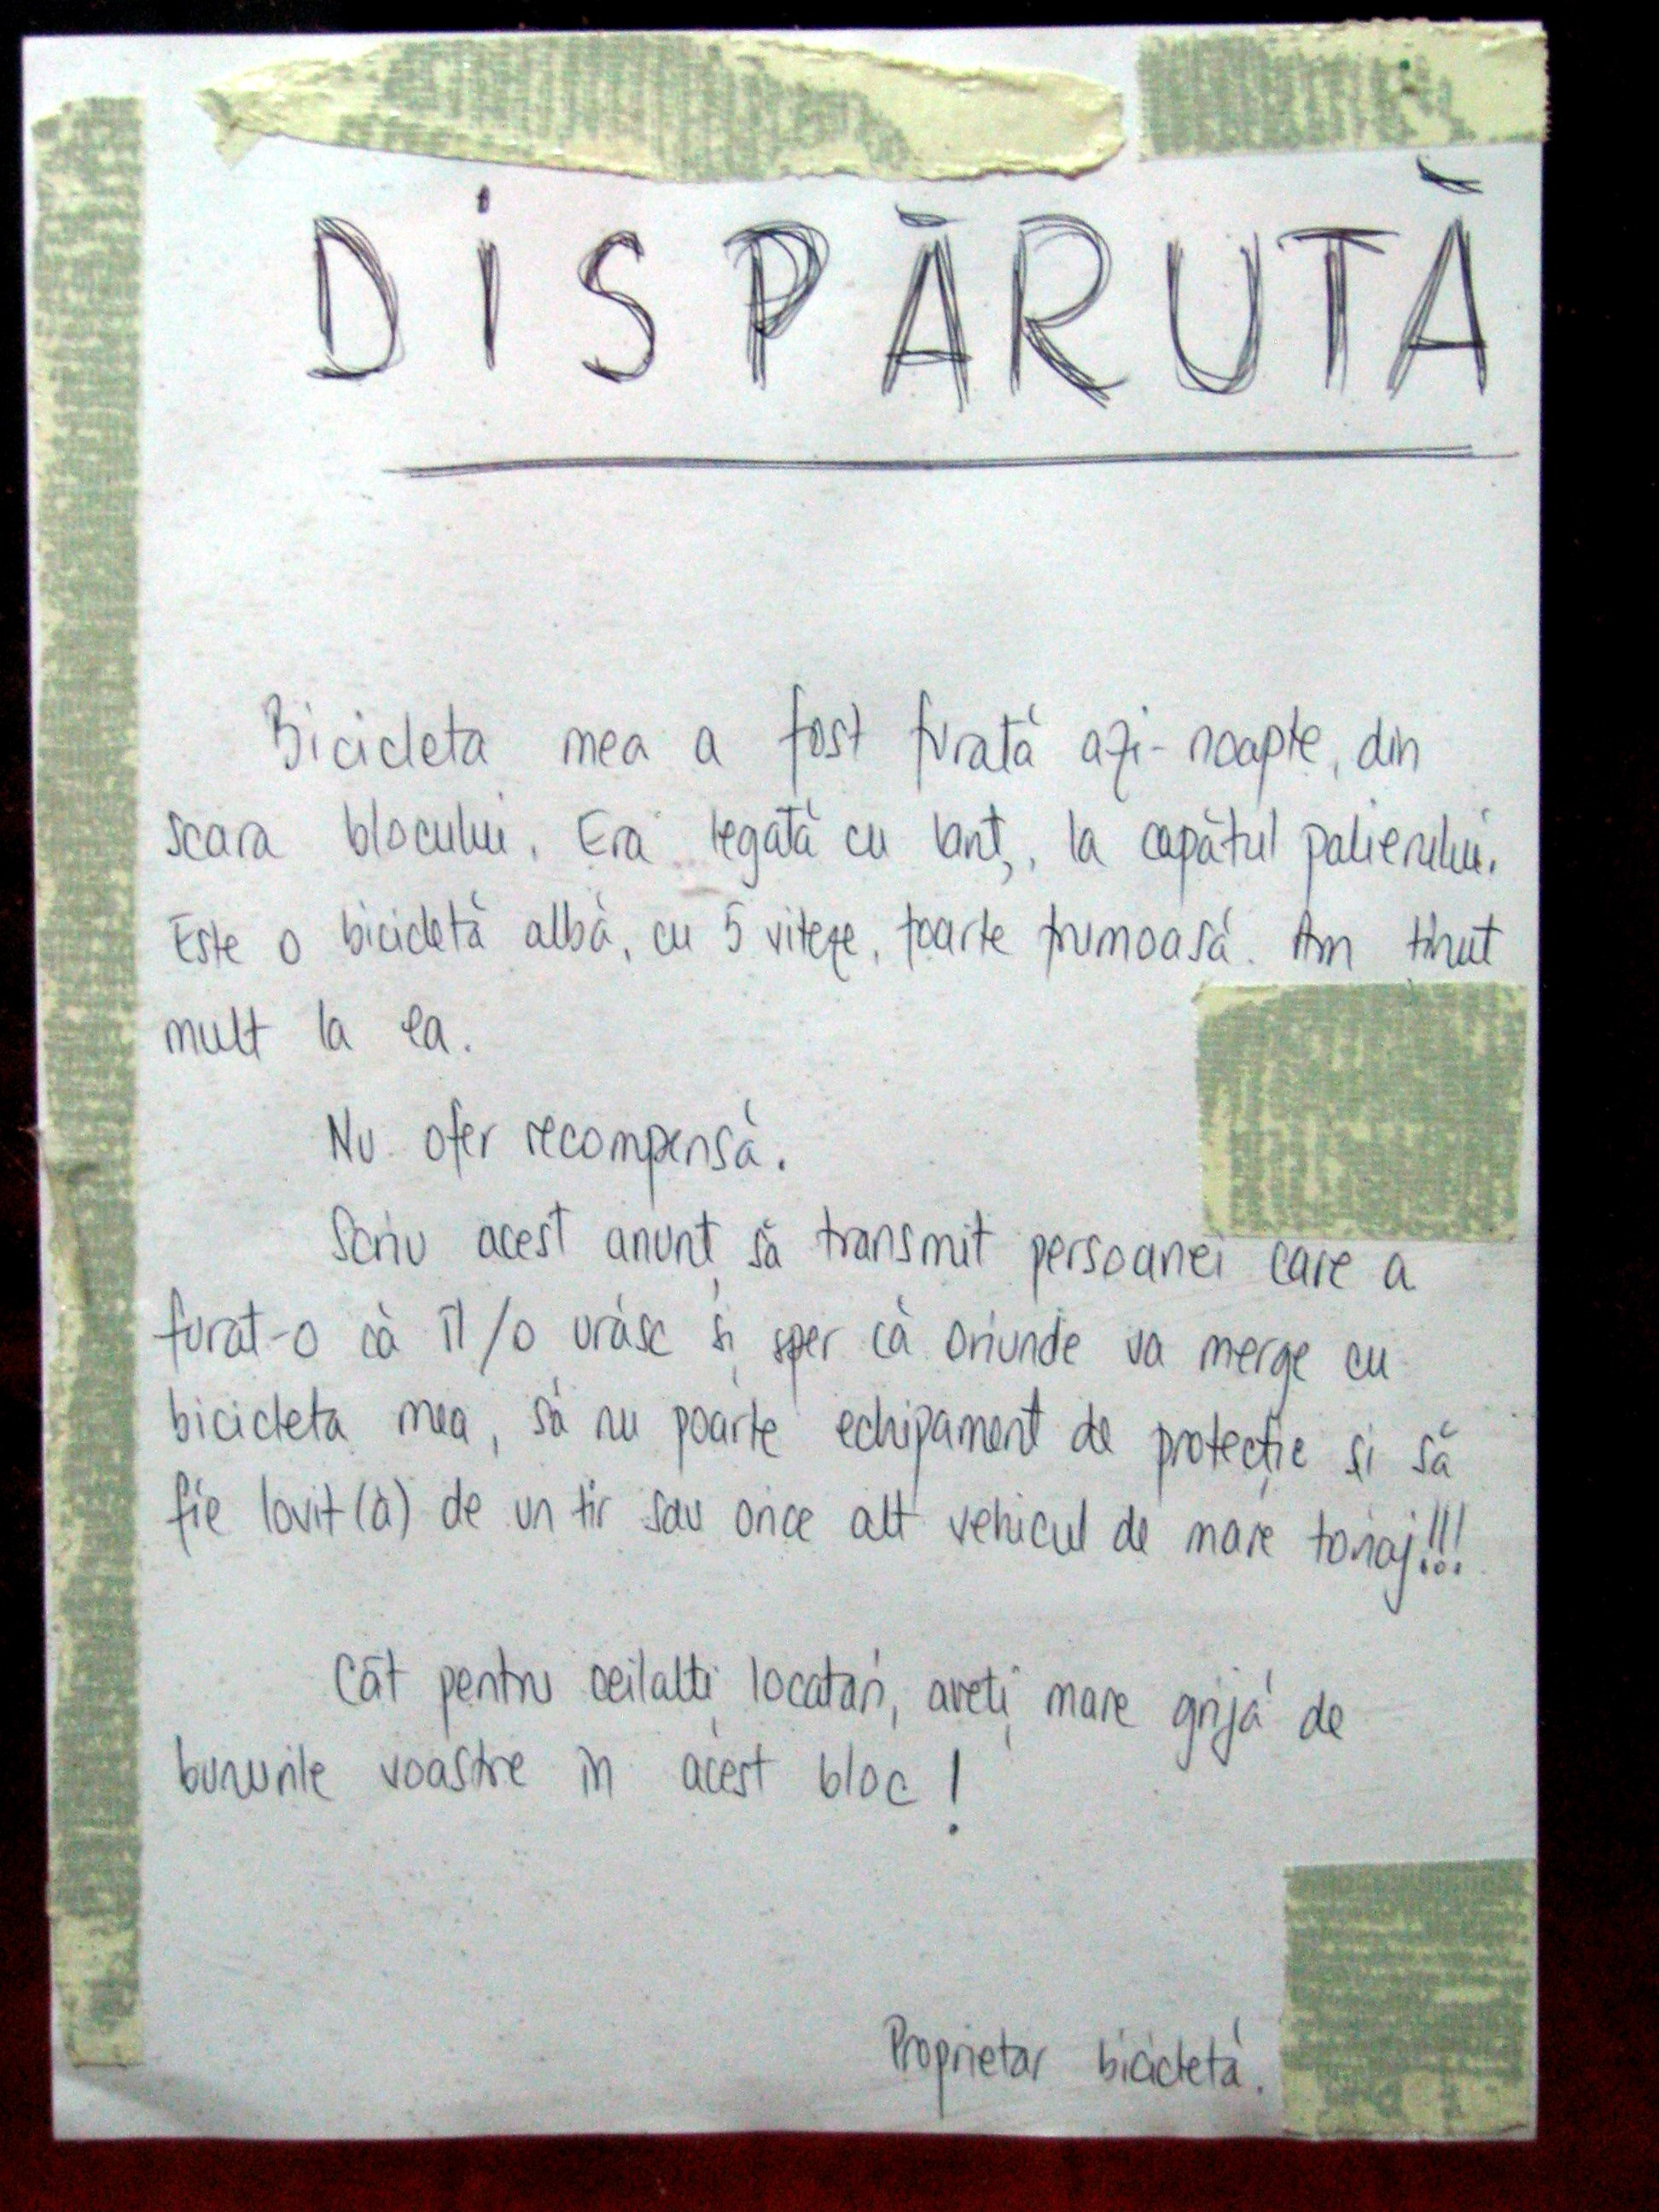 DISPĂRUTĂ
Bicicleta mea a fost furată azi-noapte, din
scara blocului. Era legată cu lanț, la capătul palierului.
Este o bicicletă albă, cu 5 viteze, foarte frumoasă. Am tinut
mult la ea.
Nu ofer recompensă.
Scriu acest anunț să transmit persoanei care a
furat-o că îl/o urăsc și sper că oriunde va merge cu
bicicleta mea, să nu poarte echipament de protecție și să
fie lovit(ă) de un tir sau orice alt vehicul de mare tonaj!!!
Cât pentru ceilalți locatari, aveți mare grijă de
bunurile voastre în acest bloc!
Proprietar bicicletă.